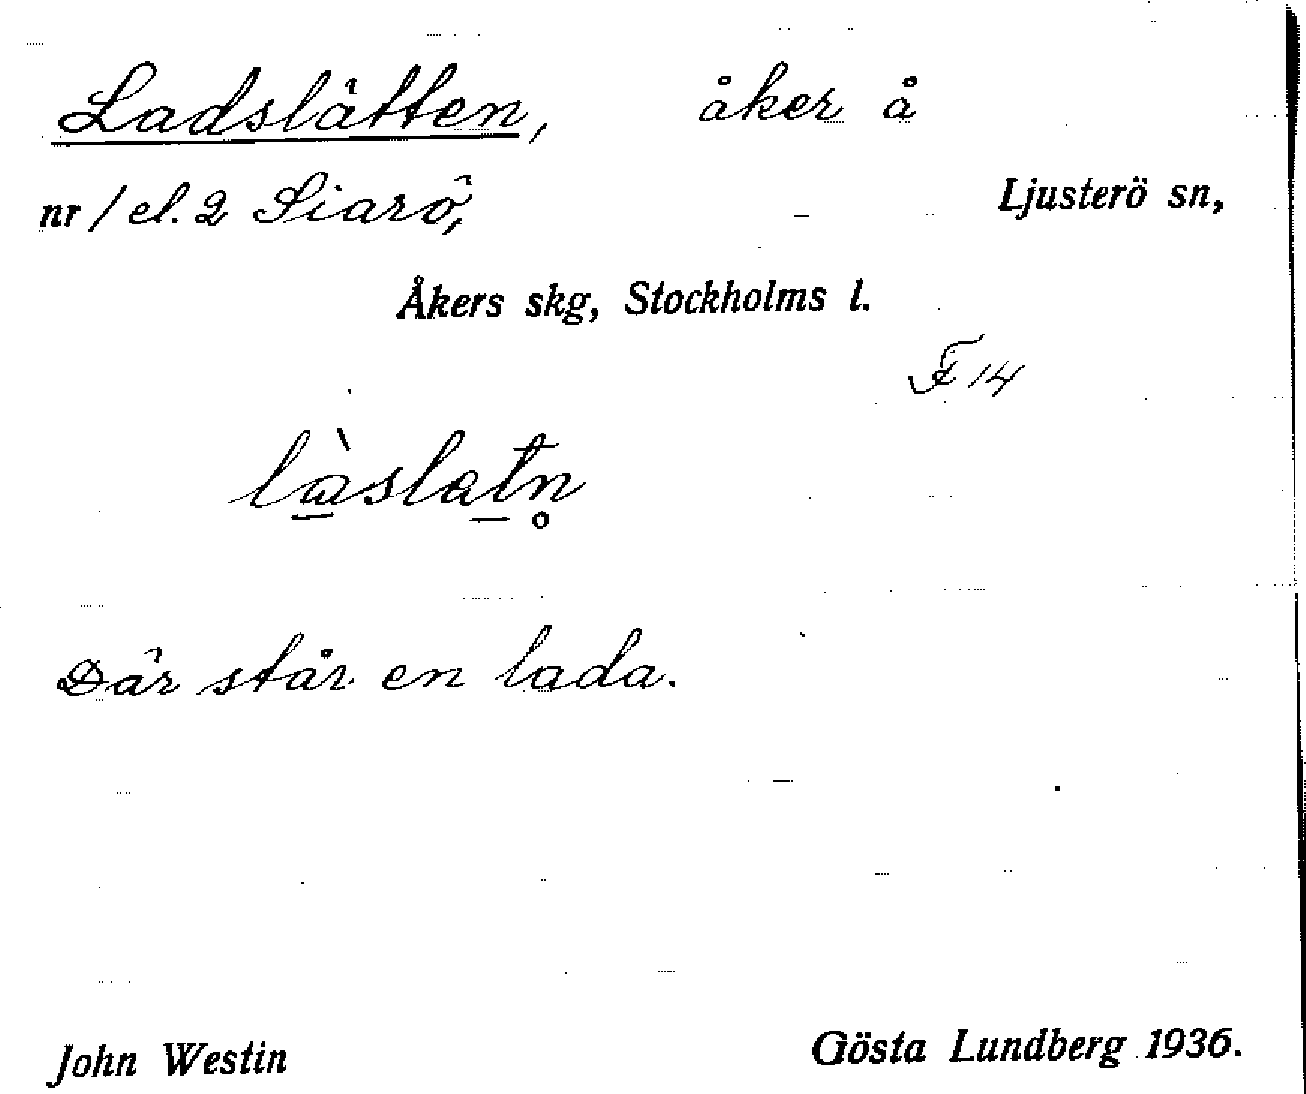 Ladslätten, åker å
nr 1 el. 2 Siarö, Ljusterö sn,
Åkers skg, Stockholms l.
F 14
là̱slat̠n̥
Där står en lada.
John Westin Gösta Lundberg 1936.